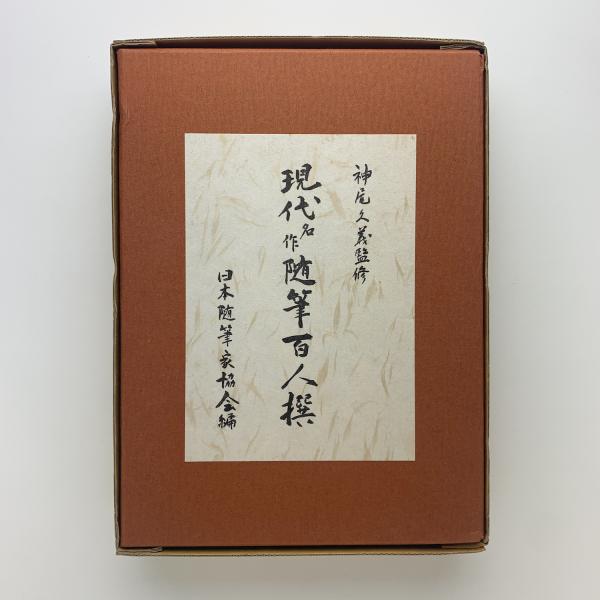 神尾久義監修
現代名作随筆百人撰
日本随筆家協会編